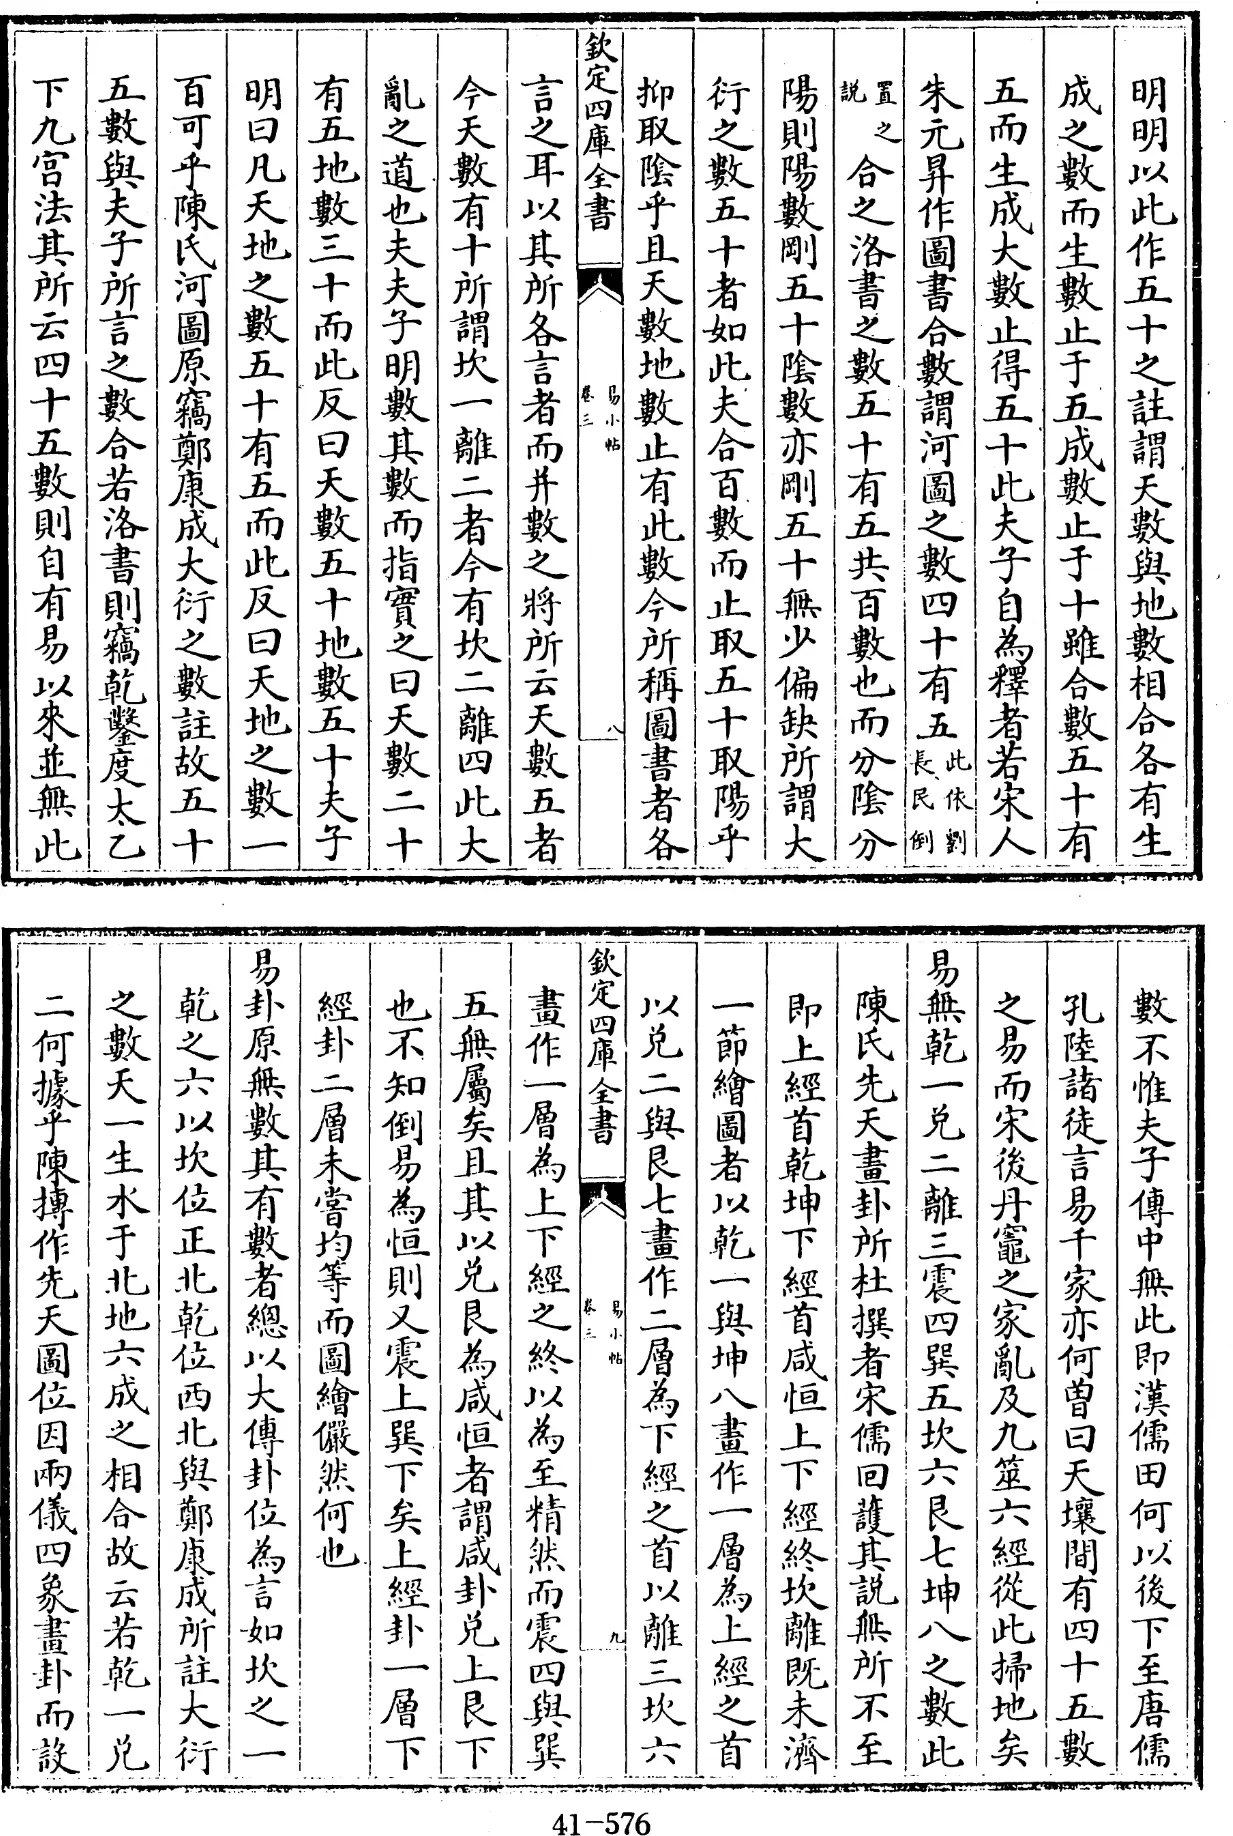 明明以此作五十之註謂天數與地數相合各有生
成之數而生數止于五成數止于十雖合數五十有
五而生成大數止得五十此夫子自為釋者若宋人
朱元昇作圖書合數謂河圖之數四十有五此依劉長民倒
置之說合之洛書之數五十有五共百數也而分陰分
陽則陽數剛五十陰數亦剛五十無少偏缺所謂大
衍之數五十者如此夫合百數而止取五十取陽乎
抑取陰乎且天數地數止有此數今所稱圖書者各
欽定四庫全書
易小帖
卷三
八
言之耳以其所各言者而并數之將所云天數五者
今天數有十所謂坎一離二者今有坎二離四此大
亂之道也夫夫子明數其數而指實之曰天數二十
有五地數三十而此反曰天數五十地數五十夫子
明曰凡天地之數五十有五而此反曰天地之數一
百可乎陳氏河圖原竊鄭康成大衍之數註故五十
五數與夫子所言之數合若洛書則竊乾鑿度太乙
下九宮法其所云四十五數則自有易以來並無此
數不惟夫子傳中無此即漢儒田何以後下至唐儒
孔陸諸徒言易千家亦何曾曰天壤間有四十五數
之易而宋後丹竈之家亂及九筮六經從此掃地矣
易無乾一兌二離三震四巽五坎六艮七坤八之數此
陳氏先天畫卦所杜撰者宋儒回護其說無所不至
即上經首乾坤下經首咸恒上下經終坎離既未濟
一節繪圖者以乾一與坤八畫作一層為上經之首
以兌二與艮七畫作二層為下經之首以離三坎六
欽定四庫全書
易小帖
卷三
九
畫作一層為上下經之終以為至精然而震四與巽
五無屬矣且其以兌艮為咸恒者謂咸卦兌上艮下
也不知倒易為恒則又震上巽下矣上經卦一層下
經卦二層未嘗均等而圖繪儼然何也
易卦原無數其有數者總以大傳卦位為言如坎之一
乾之六以坎位正北乾位西北與鄭康成所註大衍
之數天一生水于北地六成之相合故云若乾一兌
二何據乎陳摶作先天圖位因兩儀四象畫卦而設
41-576